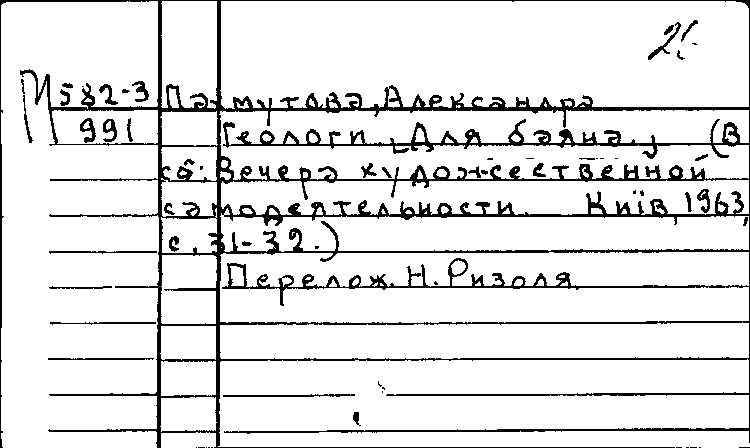 М 582-3 Пахмутова, Александра
991 Геологи. [Для баяна.] (В
сб: Вечера художественной
самодеятельности. Київ, 1963,
с. 31-32.)
Перелож. Н. Ризоля.